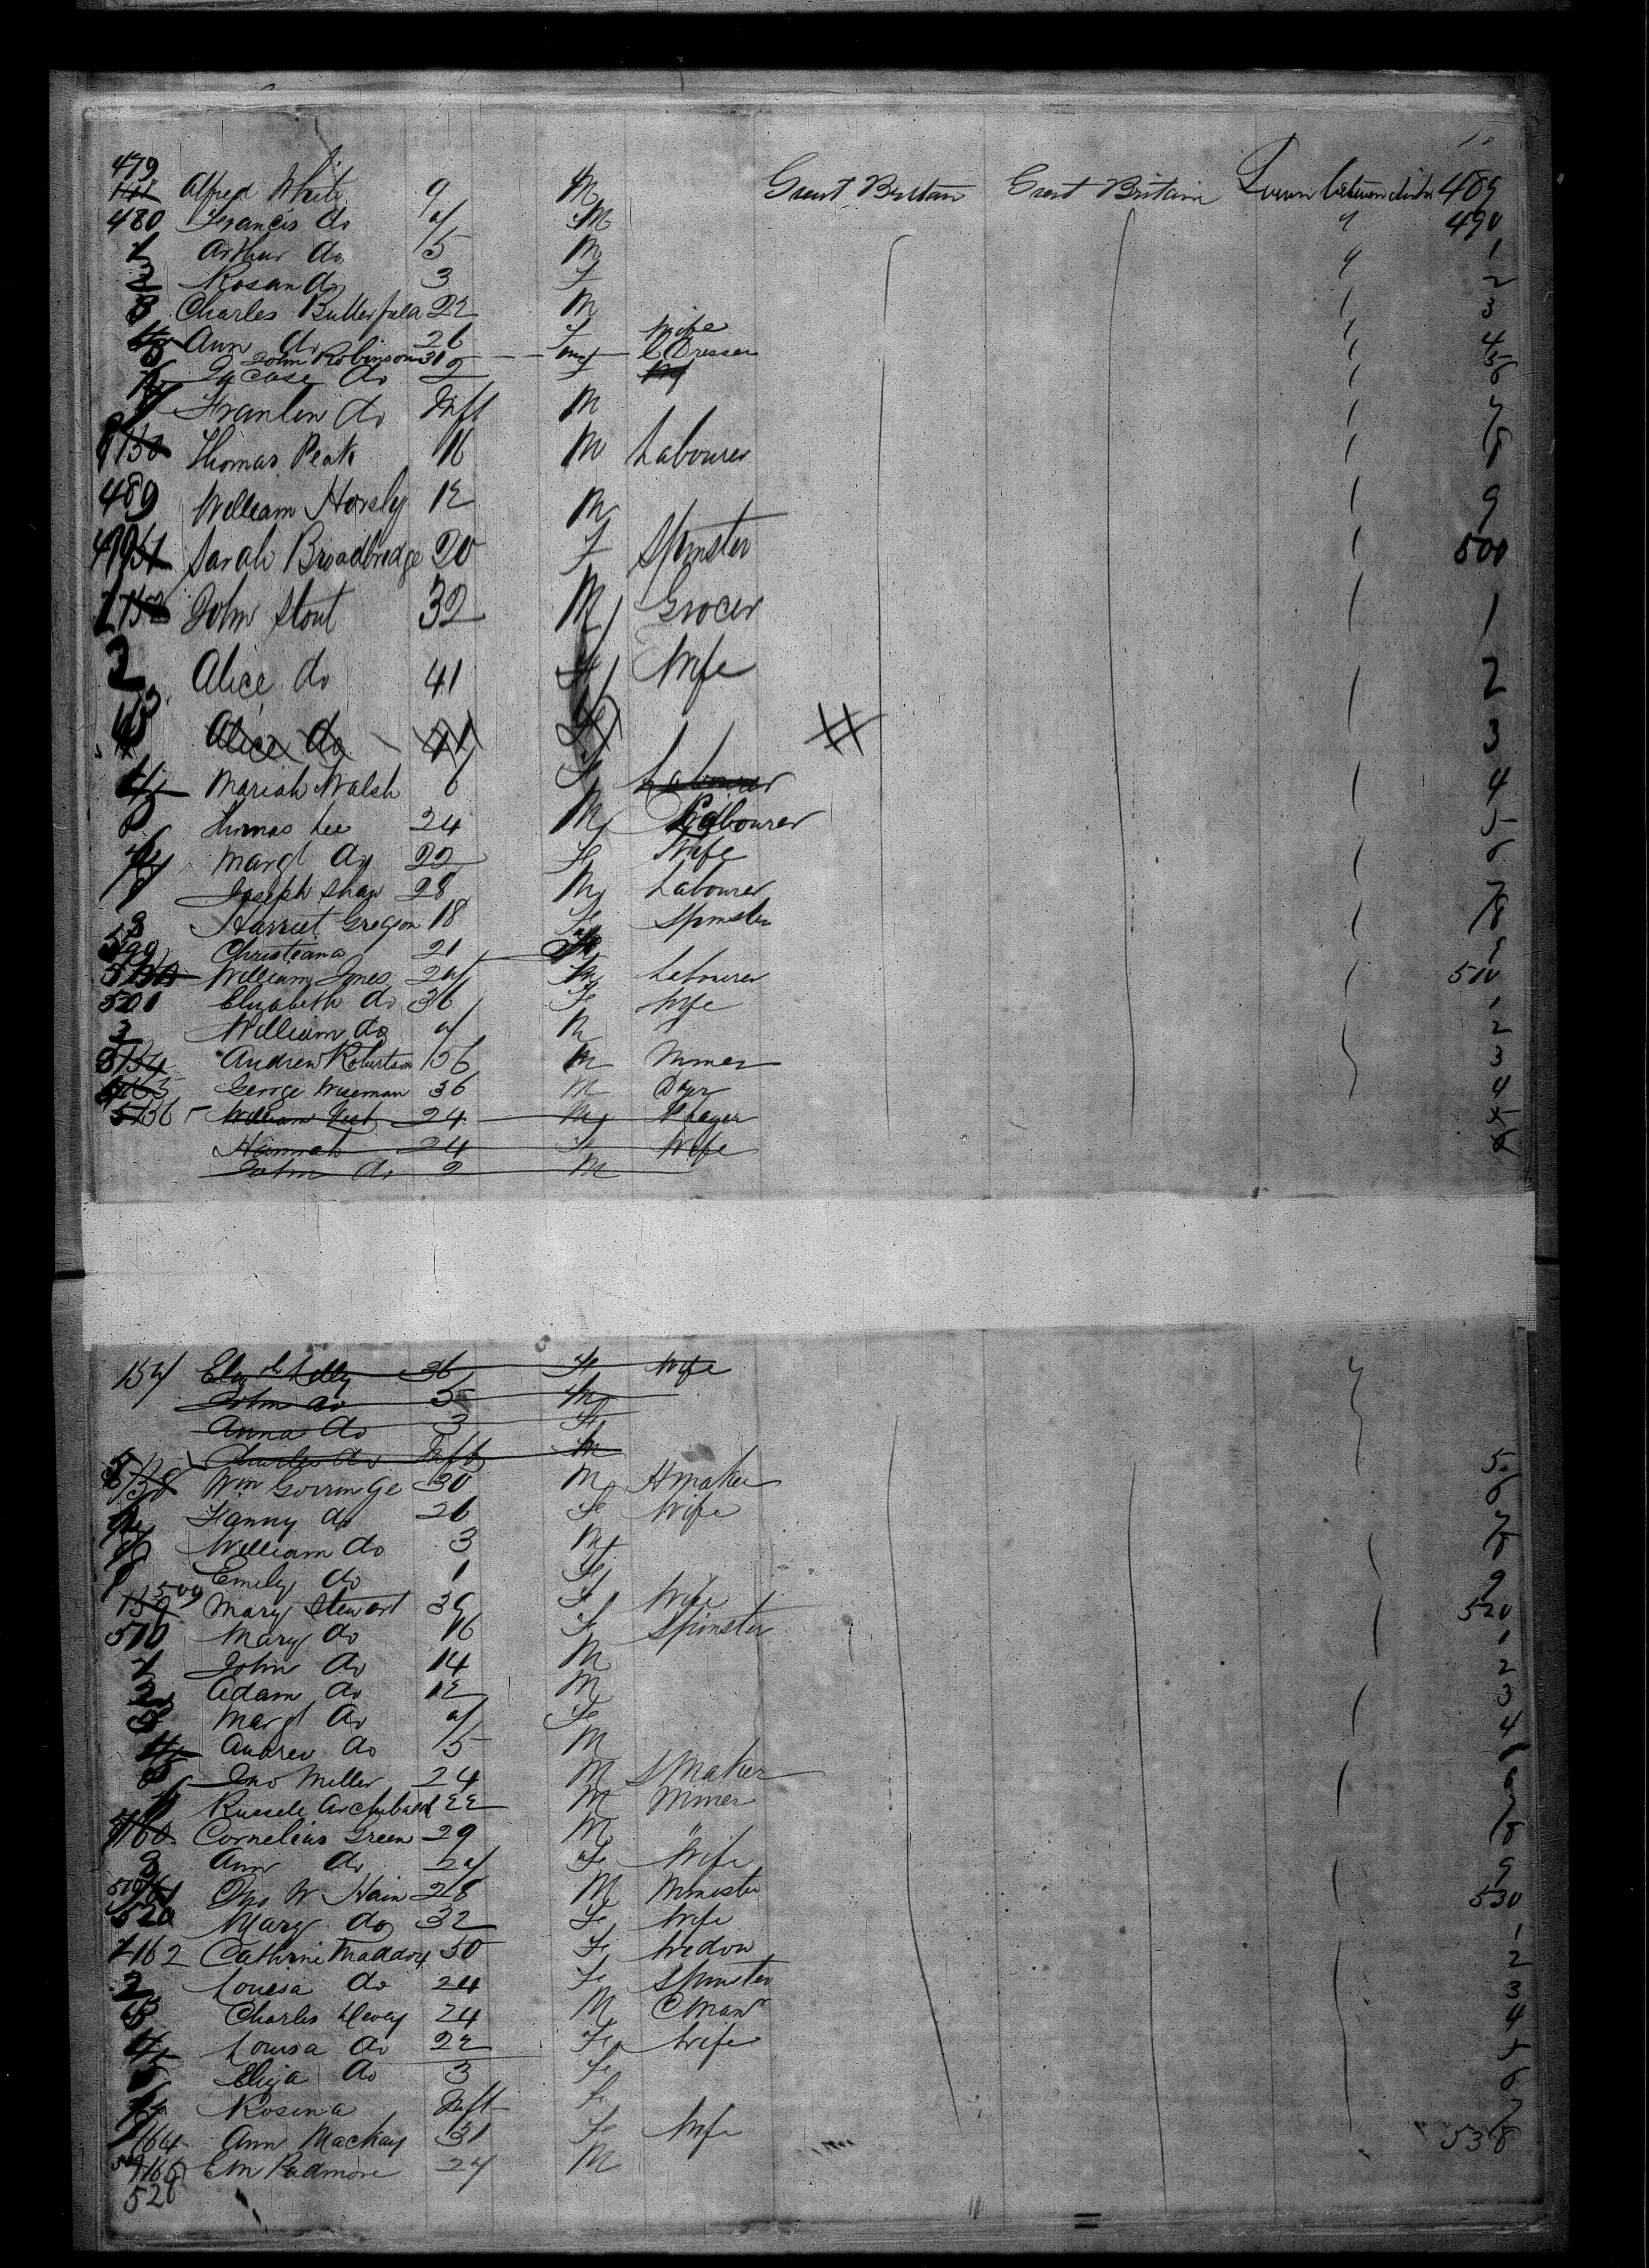 479 Alfred White 9 M Great Britain Great Britain Lower between decks 489
480 Francis do 7 M 490
1 Arthur do 5 M 1
2 Rosan do 3 F 2
3 Charles Butterfield 22 M 3
4 Ann do 26 F Wife 4
5 John Robinson 30 M Dresser 5
6 do 2 F 6
7 do Inft M 7
8 Thomas Peak 16 M Labourer 8
489 William Horsly 12 M 9
490 Sarah Broadbridge 20 F Spinster 500
1 152 John Stout 32 M Grocer 1
2 Alice do 41 F Wife 2
3 Alice do 41 Fe 3
4 Mariah Walsh 6 F Labourer 4
5 Thomas Lee 24 M Labourer 5
6 Margt do 22 Fe Wife 6
7 Joseph Shaw 28 M Labourer 7
8 Harriet Gregson 18 Fe Spinster 8
499 Christiana 21 9
500 William Jones 27 M Labourer 510
501 Elizabeth do 36 Fe Wife 1
2 William do 7 M 2
3 154 Andrew Robertson 56 M Miner 3
4 155 George Wiseman 36 M Dyer 4
5 156 William West 24 M 5
Hannah 24 Fe Wife 6
John do 2 M
157 Elizth Lilly 36 Fe Wife
John do 5 M
Anna do 3 Fe
Charles do Inft M
5 158 Wm Gorringe 30 M Hmaker 5
6 Fanny do 26 Fe Wife 6
7 William do 3 M 7
8 Emily do 1 Fe 8
159 509 Mary Stewart 39 F Wife 9
510 Mary do 16 Fe Spinster 520
1 John do 14 M 1
2 Adam do 12 M 2
3 Margt do 7 Fe 3
4 Andrew do 5 M 4
5 Jno Miller 24 M Smaker
6 Russell Archibald 22 M Miner 6
7 160 Cornelius Green 29 M " 7
8 Ann do 27 Fe Wife 8
519 161 Jno W Hain 28 M Minister 9
520 Mary do 32 Fe Wife 530
1 162 Cathrine Maddox 50 Fe Widow 1
2 Louesa do 24 Fe Spinster 2
3 Charles 24 M C Man 3
4 Louisa do 22 Fe Wife 4
5 Eliza do 3 Fe 5
6 Rosina Inft F 6
7 164 Ann Mackay 31 Fe Wife 7
165 EM Padmore 27 M 538
528